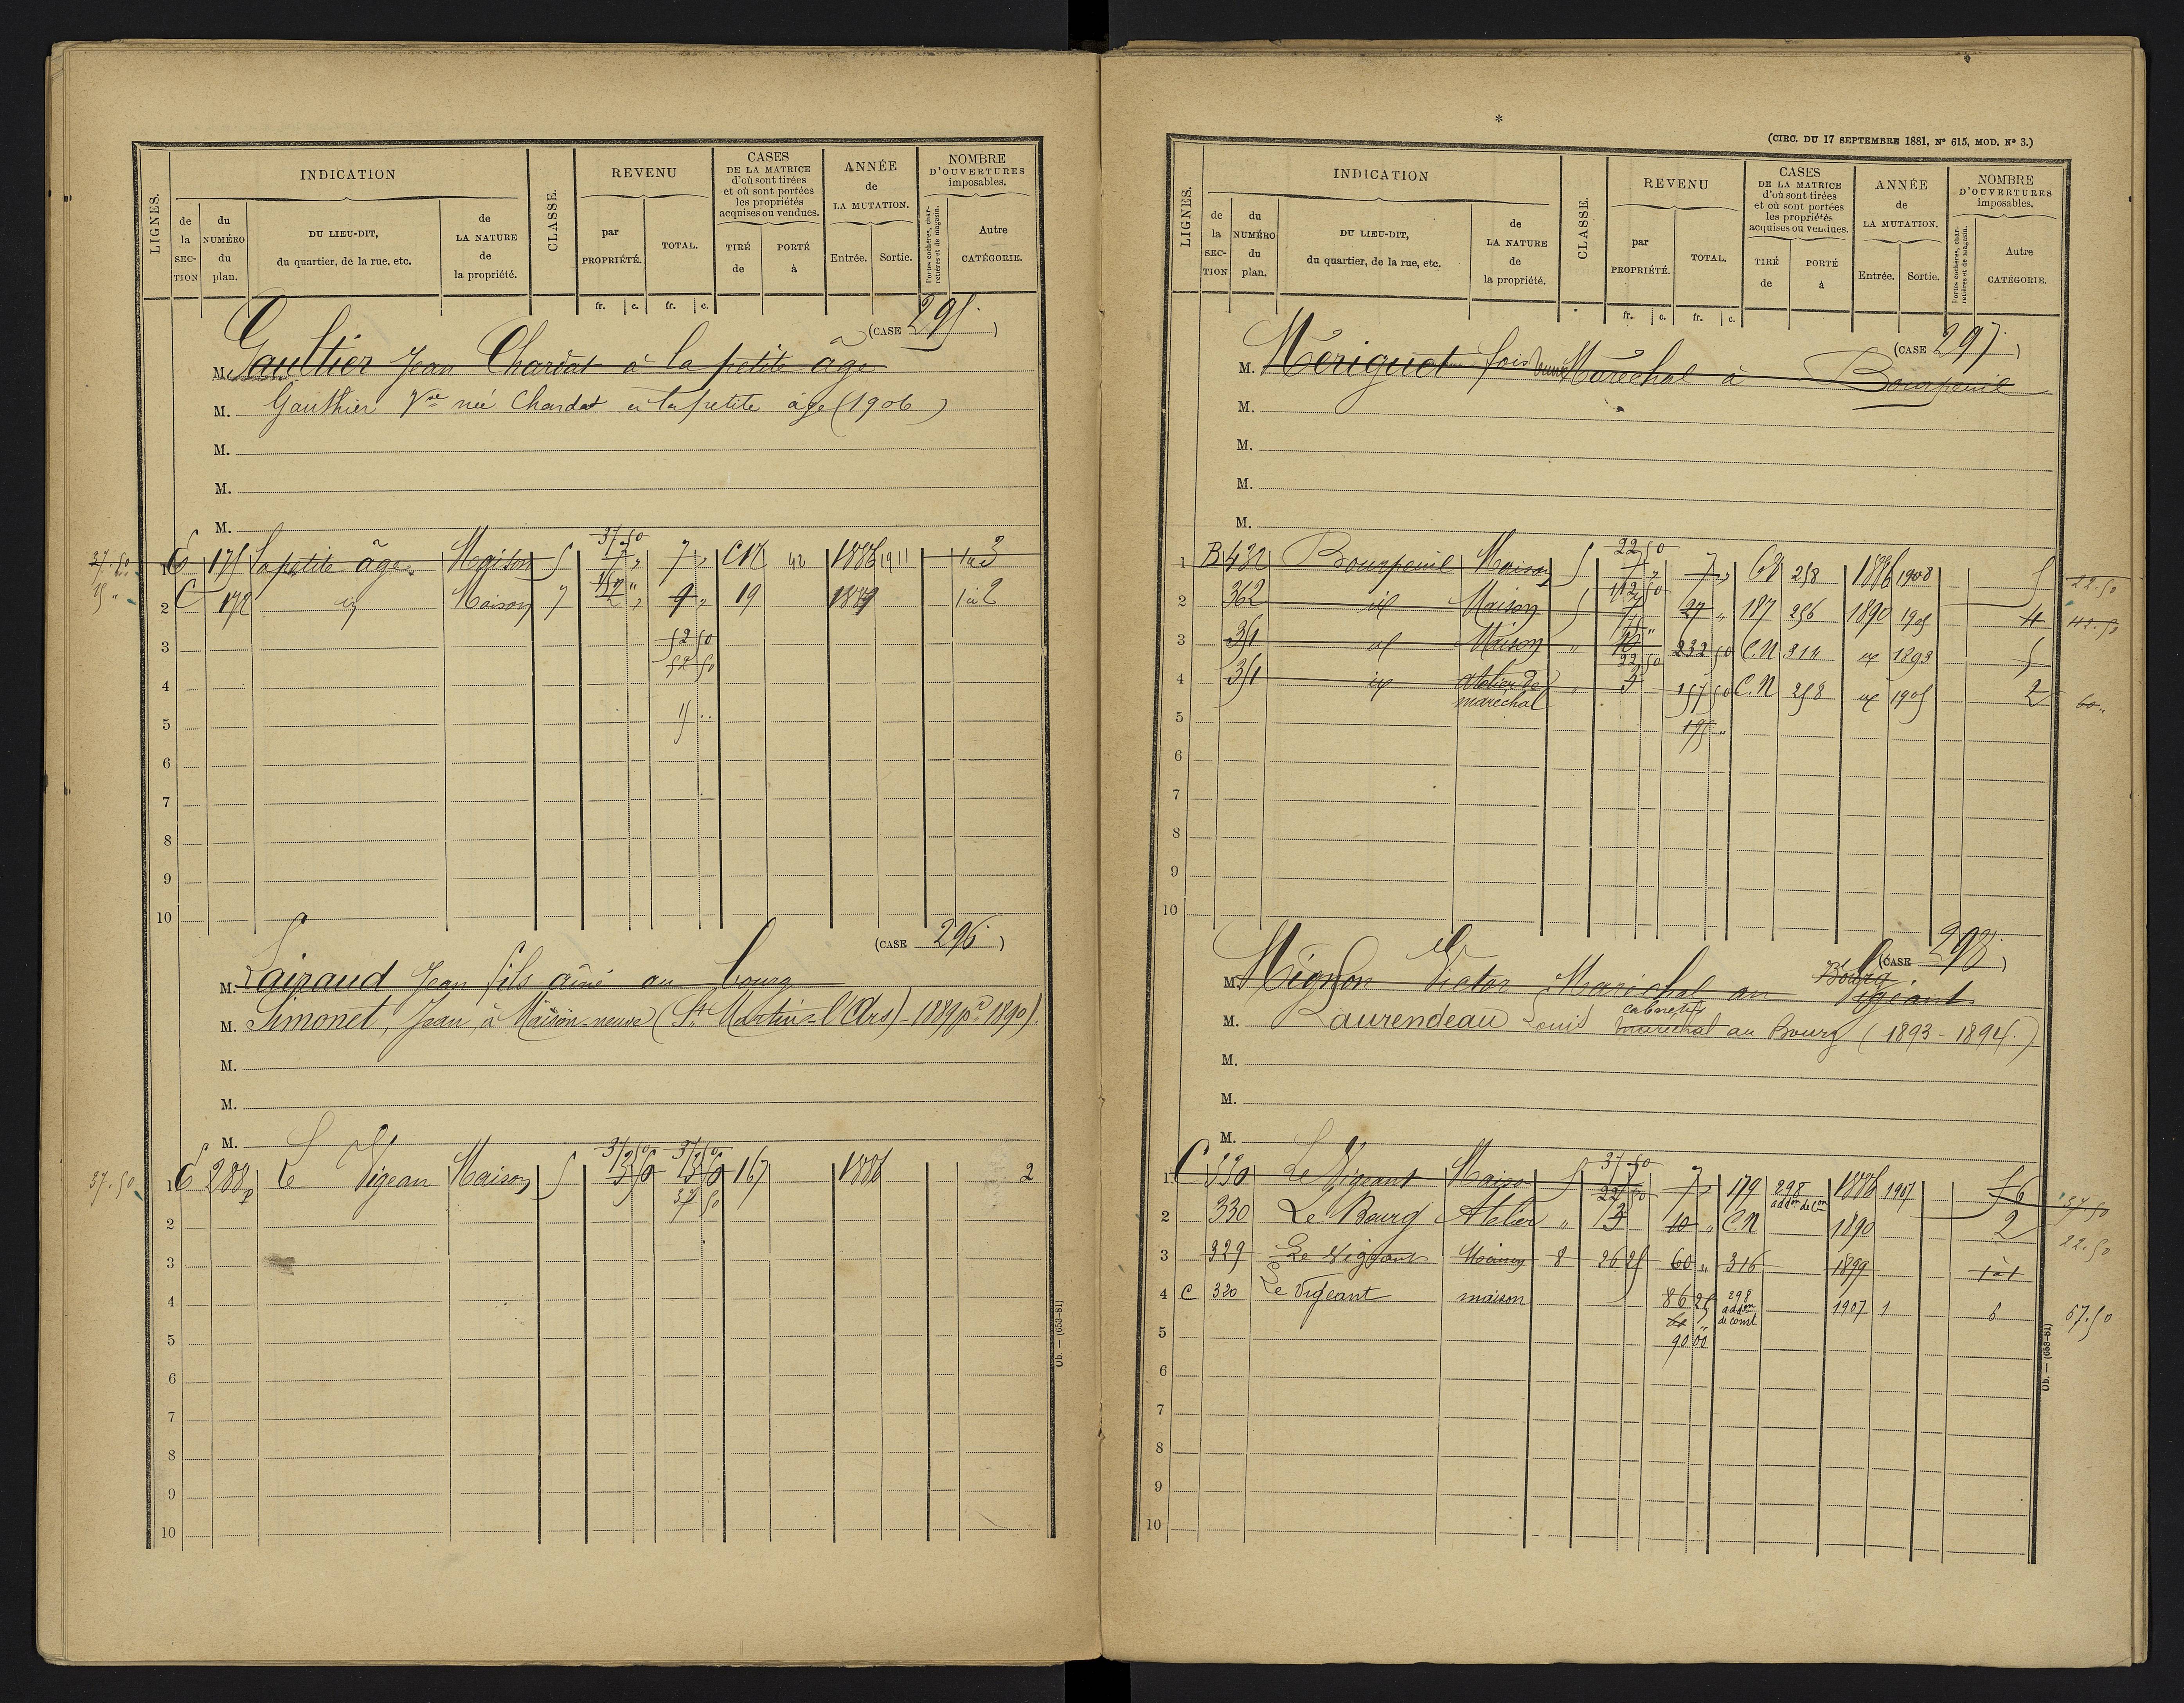 INDICATION
de la SECTION
du NUMÉRO du plan.
DU LIEU-DIT, du quartier, de la rue, etc.
de LA NATURE de la propriété.
LIGNES.
CLASSE.
REVENU
par PROPRIÉTÉ.
TOTAL.
CASES DE LA MATRICE d'où sont tirées et où sont portées les propriétés acquises ou vendues.
TIRÉ de
PORTÉ à
ANNÉE de LA MUTATION.
Entrée. Sortie.
NOMBRE D'OUVERTURES imposables.
Portes cochères, charretières et de magasin.
Autre CATÉGORIE.
fr. c. fr. c.
(CASE 295)
M. Gaultier Jean Chardat à la petite âge
M. Gauthier Vve née Chardat à la petite âge (1906)
M.
M.
M.
37.50 1 C 175 La petite âge Maison 5 37 50 7 " 7 " CN 42 1886 1911 3
15 " 2 C 172 id Maison 7 15 " 2 " 9 " 19 1889 2
3 52 50
52 50
4
5 15 ..
6
7
8
9
10
(CASE 296)
M. Jean fils aîné au bourg
M. Simonet, Jean, à Maison-neuve (St Martin-l'Ars) - 1889 pr 1890).
M.
M.
M.
37.50 1 C 288p Le Vigean Maison 5 37 50 37 50 167 1886 2
2 37 50
3
4
5
6
7
8
9
10
Ob. — (653-81)
*
(CIRC. DU 17 SEPTEMBRE 1881, No 615, MOD. No 3.)
INDICATION
de la SECTION
du NUMÉRO du plan.
DU LIEU-DIT, du quartier, de la rue, etc.
de LA NATURE de la propriété.
LIGNES.
CLASSE.
REVENU
par PROPRIÉTÉ.
TOTAL.
CASES DE LA MATRICE d'où sont tirées et où sont portées les propriétés acquises ou vendues.
TIRÉ de
PORTÉ à
ANNÉE de LA MUTATION.
Entrée. Sortie.
NOMBRE D'OUVERTURES imposables.
Portes cochères, charretières et de magasin.
Autre CATÉGORIE.
fr. c. fr. c.
(CASE 297)
M. Mériguet fois Maréchal à Bourpeuil
M.
M.
M.
M.
1 B 432 Bourpeuil Maison 5 22 50 7 " 7 " 68 258 1886 1908 5 22.50
2 362 id Maison 5 112 50 27 " 187 256 1890 1905 4
3 351 id Maison " 75 " 232 50 C.N 311 id 1893 5
4 351 id Atelier de maréchal " 22 50 3 157 50 C.N 258 id 1905 2 60 "
5 195 "
6
7
8
9
10
(CASE 298)
M. Mignon Victor Maréchal au Bourg Vigeant
M. Laurendeau Louis maréchal cabaretier au Bourg (1893-1894.)
M.
M.
M.
1 C 330 Le Vigeant Maison 5 37 50 7 " 179 298 addon de Con 1886 1907 6
2 330 Le Bourg Atelier " 22 50 3 10 " C.N 1890 2 22.50
3 329 Le Vigeant Maison 8 26 25 60 " 316 1899 1à1
4 C 320 Le Vigeant maison 86 25 298 addon de const. 1907 1 6 67.50
5 90 00
6
7
8
9
10
Ob. — (653-81)